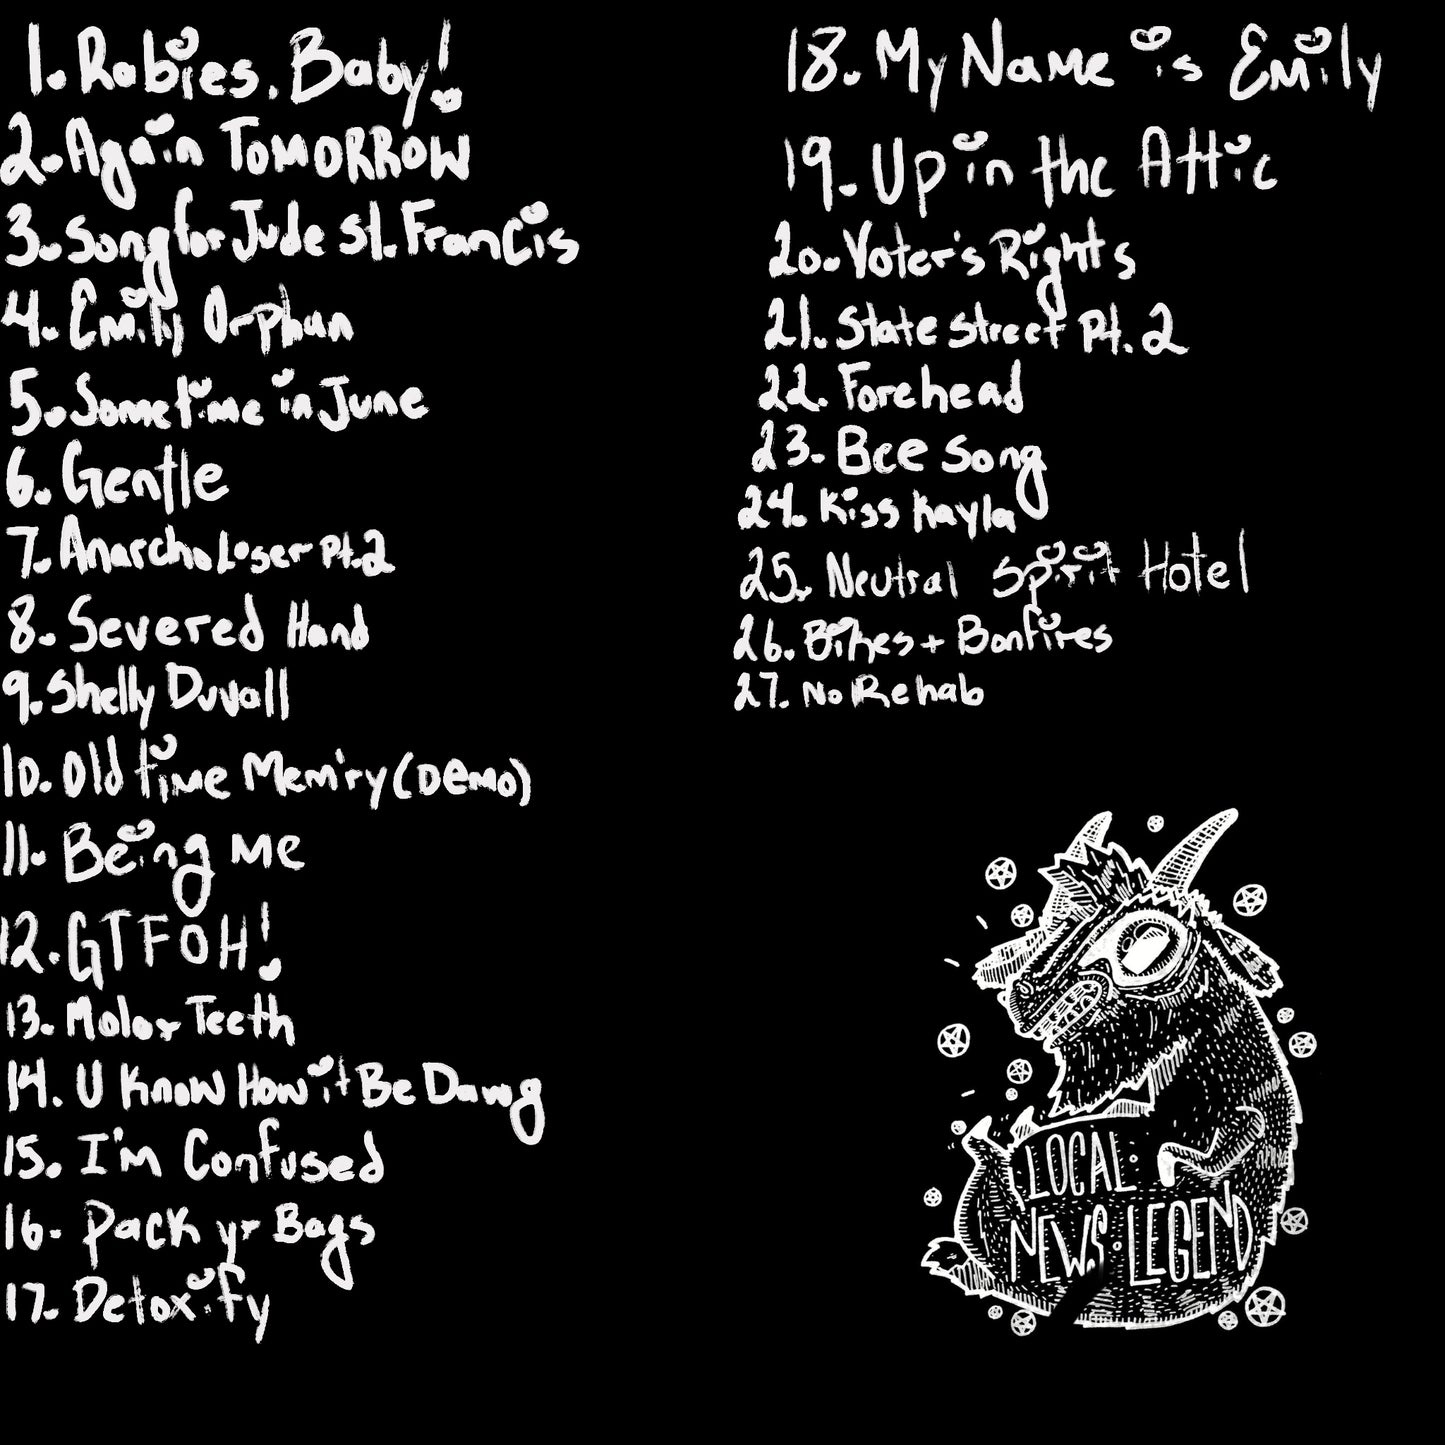 1. Rabies, Baby!
2. Again TOMORROW
3. Song for Jude St. Francis
4. Emily Orphan
5. Sometime in June
6. Gentle
7. Anarcho Loser Pt. 2
8. Severed Hand
9. Shelly Duvall
10. Old time Mem'ry (DEMO)
11. Being Me
12. GTFOH!
13. Molar Teeth
14. U Know How it Be Dawg
15. I'm Confused
16. Pack yr Bags
17. Detoxify
18. My Name is Emily
19. Up in the Attic
20. Voter's Rights
21. State Street Pt. 2
22. Forehead
23. Bee Song
24. Kiss Kayla
25. Neutral Spirit Hotel
26. Bikes + Bonfires
27. No Rehab
LOCAL
NEWS LEGEND